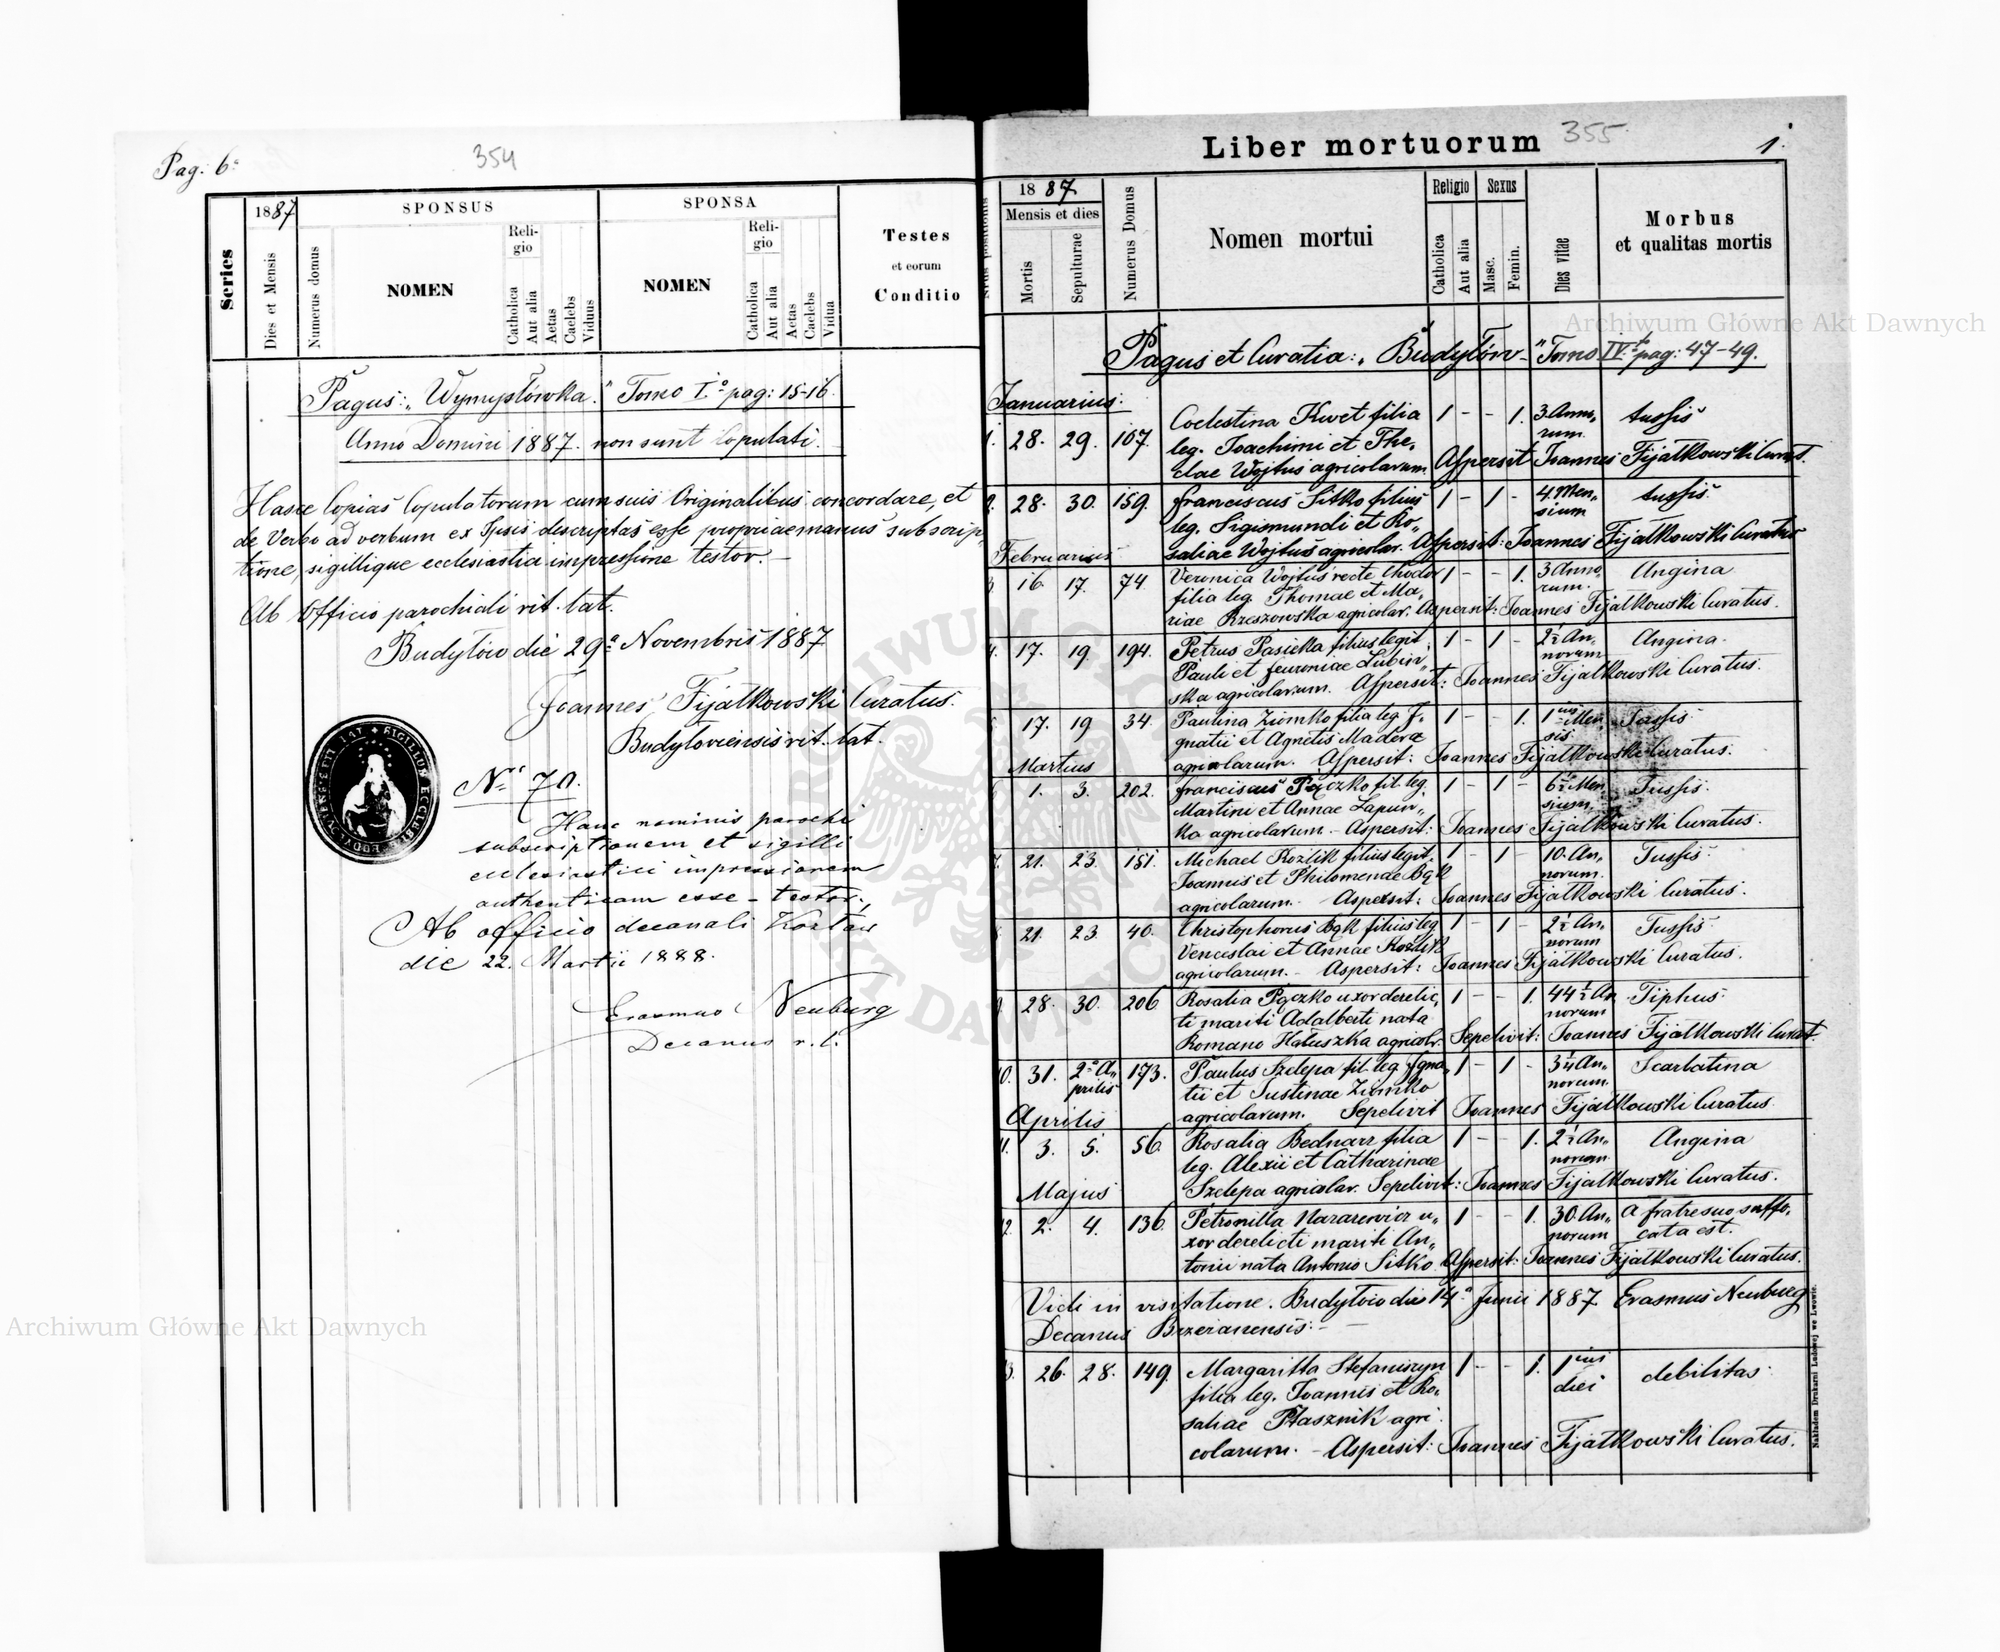 Pag: 6.
354
Series
1887
Dies et Mensis
Numerus domus
SPONSUS
NOMEN
Reli-
gio
Catholica
Aut alia
Aetas
Caelebs
Viduus
SPONSA
NOMEN
Reli-
gio
Catholica
Aut alia
Aetas
Caelebs
Vidua
Testes
et eorum
Conditio
Pagus: „Wymysłówka." Tomo I.º pag: 15-16.
Anno Domini 1887. non sunt Copulati.
Hasce Copias Copulatorum cum suis Originalibus concordare, et
de Verbo ad verbum ex Ipsis descriptas esse propriae manus subscrip-
tione, sigillique ecclesiastici impressione testor.
Ab Officio parochiali rit. lat.
Budyłów die 29ª Novembris 1887
Joannes Fijałkowski Curatus.
Budyłoviensis rit. lat.
Nrº 70.
Hanc nominis parochi
subscriptionem et sigilli
ecclesiastici impressionem
authenticam esse – testor.
Ab officio decanali Kozłów
die 22. Martii 1888.
Erasmus Neuburg
Decanus r. l.
Liber mortuorum
355
1.
1887
Mensis et dies
Mortis
Sepulturae
Numerus Domus
Nomen mortui
Religio
Catholica
Aut alia
Sexus
Masc.
Femin.
Dies vitae
Morbus
et qualitas mortis
Pagus et Curatia: „Budyłów" Tomo IV.º pag: 47-49.
Januarius.
1. 28. 29. 107. Coelestina Kwet filia 1 - - 1. 3 Anno„ tussis
leg. Joachimi et The„ rum.
clae Wojtus agricolarum. Aspersit Joannes Fijałkowski Curat.
2. 28. 30. 159. Franciscus Sitko filius 1 - 1 - 4. Men„ tussis
leg. Sigismundi et Ro„ sium
saliae Wojtus agricolar. Aspersit: Joannes Fijałkowski Curatus
Februarius
3. 16. 17. 74. Veronica Wojtus recte Chodor 1 - - 1. 3 Anno„ Angina
filia leg. Thomae et Ma„ rum.
riae Rzeszowska agricolar. Aspersit: Joannes Fijałkowski Curatus.
4. 17. 19. 194. Petrus Pasieka filius legit. 1 - 1 - 2½ An„ Angina.
Pauli et Feuroniae Lubin„ norum
ska agricolarum. Aspersit: Joannes Fijałkowski Curatus.
5. 17. 19 34. Paulina Ziomko filia leg. I„ 1 - - 1. 1ius Men„ Tussis
gnatii et Agnetis Madera sis
agricolarum. Aspersit: Joannes Fijałkowski Curatus.
Martius
6. 1. 3. 202. Franciscus Pączko fil. leg. 1 - 1 - 6½ Men„ Tussis.
Martini et Annae Lapun„ sium.
ka agricolarum. Aspersit: Joannes Fijałkowski Curatus.
7. 21. 23. 151. Michael Kozlik filius legit. 1 - 1 - 10. An„ Tussis
Joannis et Philomenae Bąk norum.
agricolarum. Aspersit: Joannes Fijałkowski Curatus.
8. 21. 23. 40. Christophorus Bąk filius leg. 1 - 1 - 2½ An„ Tussis
Venceslai et Annae Kozlik norum
agricolarum. Aspersit: Joannes Fijałkowski Curatus.
9. 28. 30. 206 Rosalia Pączko uxor derelic„ 1 - - 1. 44½ An„ Tiphus
ti mariti Adalberti nata norum
Romano Hałuszka agricolr. Sepelivit: Joannes Fijałkowski Curat.
10. 31. 2ª A„ 173. Paulus Szelepa fil. leg. Igna„ 1 - 1 - 3¼ An„ Scarlatina
prilis tii et Justinae Ziomko norum.
agricolarum. Sepelivit Joannes Fijałkowski Curatus.
Aprilis
11. 3. 5. 56. Rosalia Bednarz filia 1 - - 1. 2½ An„ Angina
leg. Alexii et Catharinae norum.
Szelepa agricolar. Sepelivit: Joannes Fijałkowski Curatus.
Majus
12. 2. 4. 136. Petronilla Nazarewicz u„ 1 - - 1. 30. An„ a fratre suo suffo„
xor derelicti mariti An„ norum cata est.
tonii nata Antonio Sitko. Aspersit: Joannes Fijałkowski Curatus.
Vidi in visitatione. Budyłów die 14ª Junii 1887. Erasmus Neuburg
Decanus Brzezanensis.
13. 26. 28. 149. Margaritta Stefaniszyn 1 - - 1. 1ius debilitas
filia leg. Joannis et Ro„ diei
saliae Ptasznik agri
colarum. – Aspersit: Joannes Fijałkowski Curatus.
Nakładem Drukarni Ludowej we Lwowie.
Archiwum Główne Akt Dawnych
Archiwum Główne Akt Dawnych